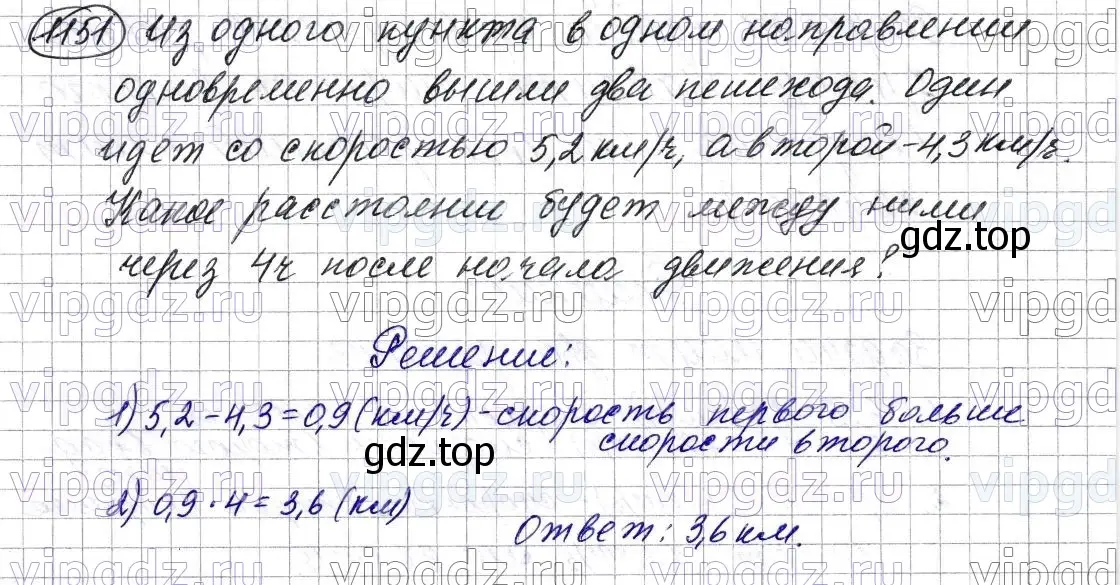 1151 Из одного пункта в одном направлении
одновременно вышли два пешехода. Один
идёт со скоростью 5,2 км/ч, а второй - 4,3 км/ч.
Какое расстояние будет между ними
gdz.top
через 4ч после начала движения?
Решение:
1) 5,2 - 4,3 = 0,9 (км/ч) - скорость первого больше
скорости второго.
gdz.top
2) 0,9 · 4 = 3,6 (км)
Ответ: 3,6 км.
vipgdz.ru